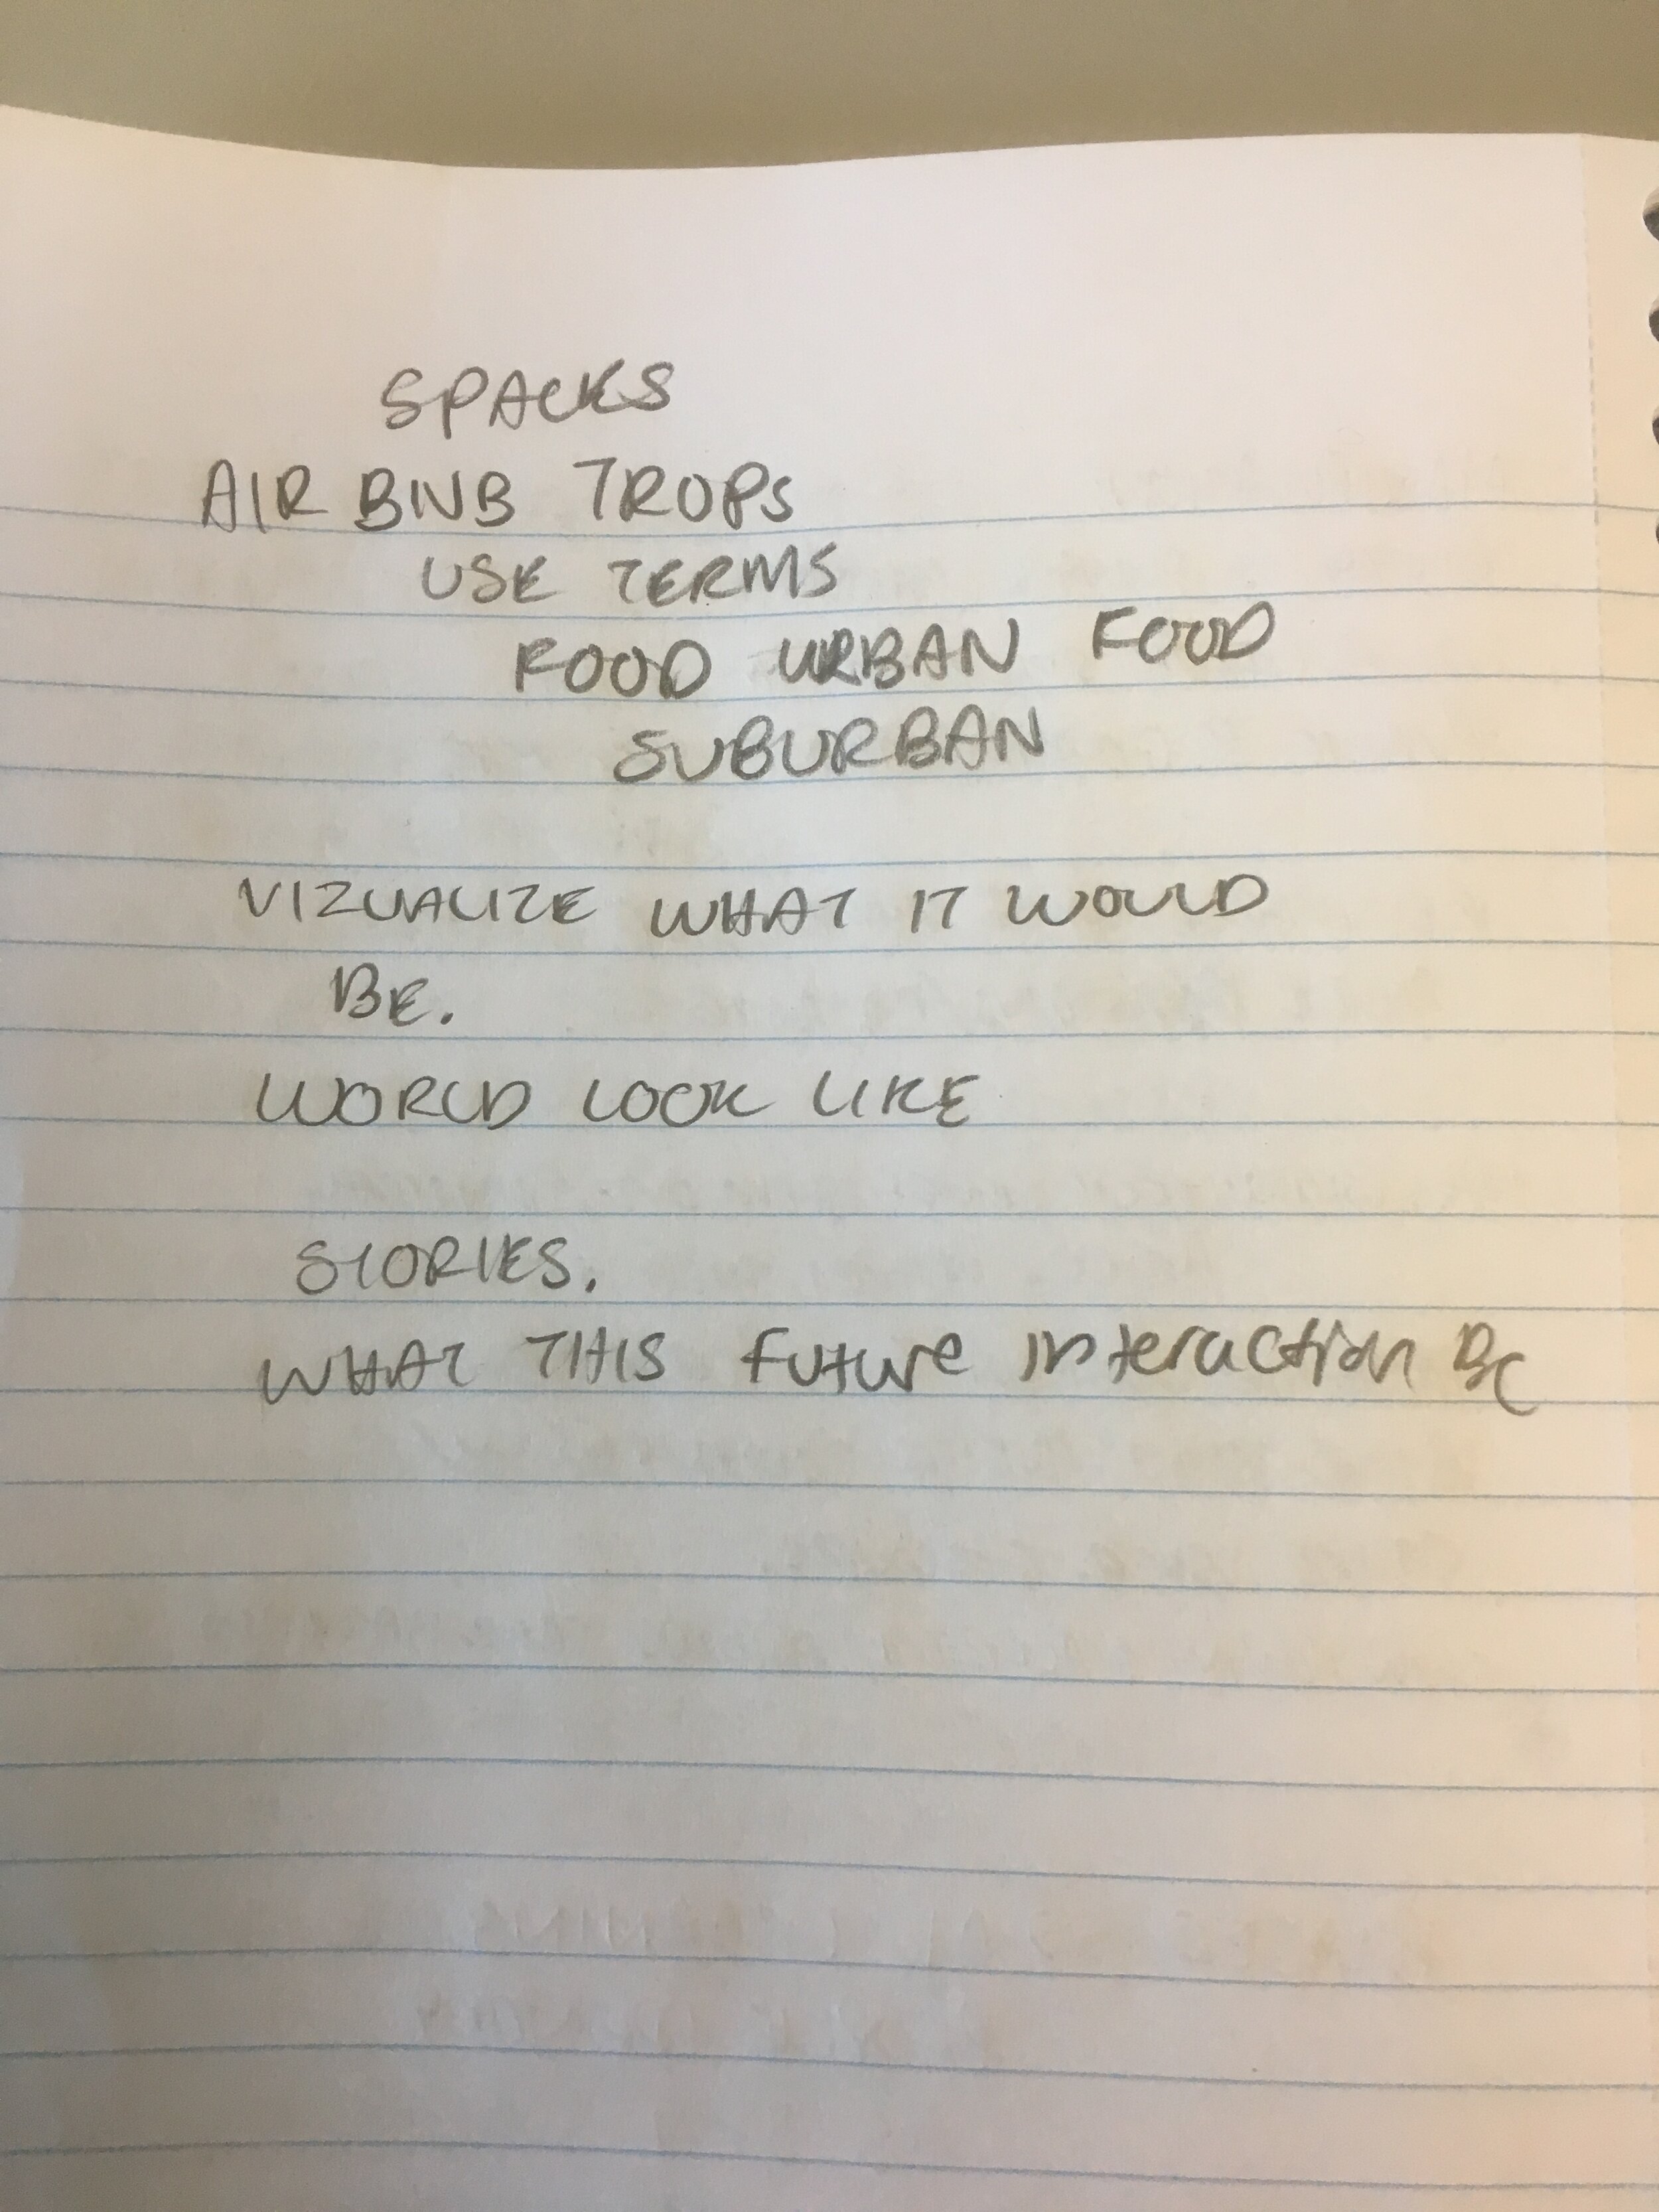 SPACKS
AIR BNB TROPS
USE TERMS
FOOD URBAN FOOD
SUBURBAN
VIZUALIZE WHAT IT WOULD
BE.
WORLD LOOK LIKE
STORIES.
WHAT THIS future interaction BE